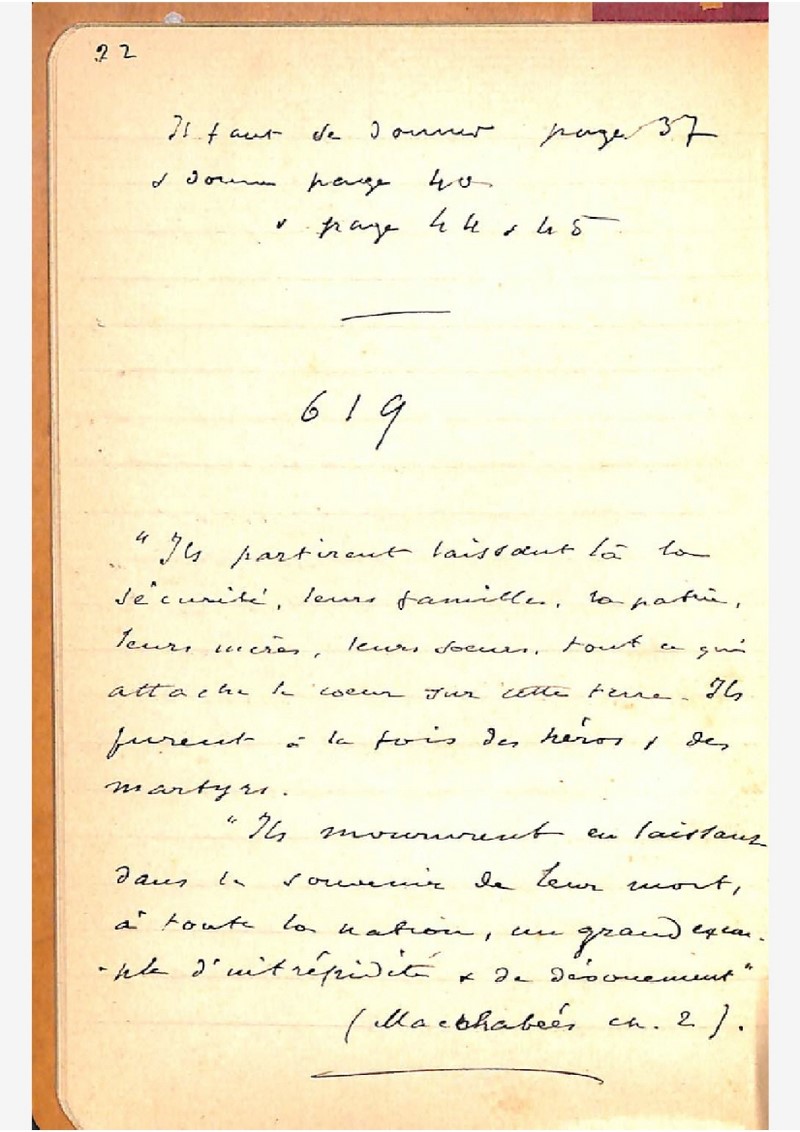 22
Il faut se donner page 37
& donner page 40
& page 44 & 45
619
"Ils partirent laissant là la
sécurité, leurs familles, la patrie,
leurs mères, leurs sœurs, tout ce qui
attache le coeur sur cette terre. Ils
furent à la fois des héros & des
martyrs.
"Ils moururent en laissant
dans le souvenir de leur mort,
à toute la nation, un grand exem-
-ple d'intrépidité & de dévouement"
(Macchabées ch. 2).